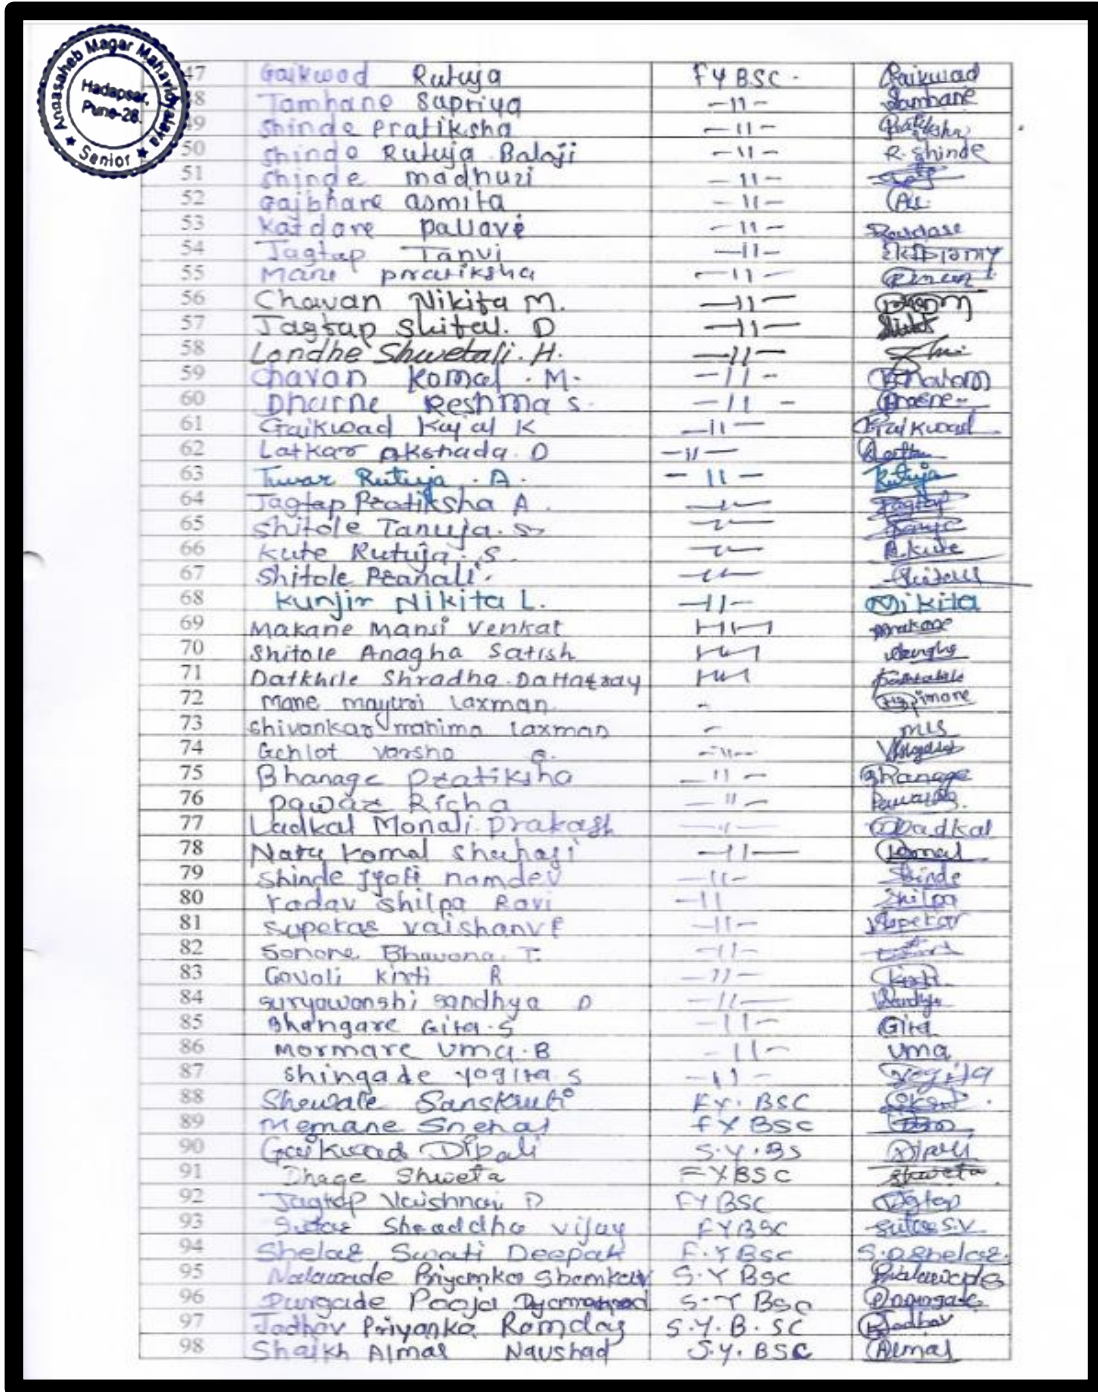 Annasaheb Magar Mahavidyalaya
Hadapsar,
Pune-28.
★ Senior ★
47 Gaikwad Rutuja FYBSC. Gaikwad
48 Tamhane Supriya -11- Tambane
49 Shinde Pratiksha -11- Pratiksha
50 Shinde Rutuja Balaji -11- R. Shinde
51 Shinde madhuri -11-
52 Gaibhare asmita -11-
53 Katdare pallavi -11-
54 Jagtap Tanvi -11-
55 Mane pratiksha -11-
56 Chavan Nikita M. -11-
57 Jagtap Shital. D -11-
58 Londhe Shwetali. H. -11-
59 Chavan Komal . M. -11-
60 Dhurne Reshma S. -11-
61 Gaikwad Kajal K -11- Gaikwad
62 Latkar Akshada. D -11-
63 Tuvar Rutuja . A. -11- Rutuja
64 Jagtap Pratiksha A. -11- Jagtap
65 Shitole Tanuja. S -11-
66 Kute Rutuja. S. -11- R.kute
67 Shitole Pranali. -11- Shitole
68 Kunjir Nikita L. -11- Nikita
69 Makane Mansi Venkat -11- Makane
70 Shitole Anagha Satish -11-
71 Datkhile Shradha Dattatray -11-
72 Mane mayuri laxman
73 Shivankar mahima laxman
74 Gehlot varsha G. -11-
75 Bhanage Pratiksha -11- Bhanage
76 Pawar Richa -11-
77 Ladkal Monali Prakash -11- Ladkal
78 Nare Komal Shahaji -11- Komal
79 Shinde Jyoti namdev -11- Shinde
80 Yadav Shilpa Ravi -11 Shilpa
81 Supekar vaishanvi -11- Supekar
82 Sonone Bhavana T. -11-
83 Gavali kirti R -11- kirti
84 Suryawanshi sandhya D -11-
85 Bhangare Gita. S -11- Gita
86 Mormare Uma. B -11- Uma
87 Shingade Yogita S -11- Yogita
88 Shewale Sanskruti FY. BSC
89 Memane Snehal FYBSC
90 Gaikwad Dipali S.Y.BS Dipali
91 Dhage Shweta FYBSC Shweta
92 Jagtap Vaishnavi D FYBSC Jagtap
93 Sutar Shraddha vijay FYBSC Sutar S.V.
94 Shelar Swati Deepak F.Y Bsc S.D.Shelar.
95 Nalawade Priyanka S.Y Bsc Nalawade
96 Durgade Pooja S.Y Bsc
97 Jadhav Priyanka Ramdas S.Y.B.SC Jadhav
98 Shaikh Almas Naushad S.Y. BSC Almas